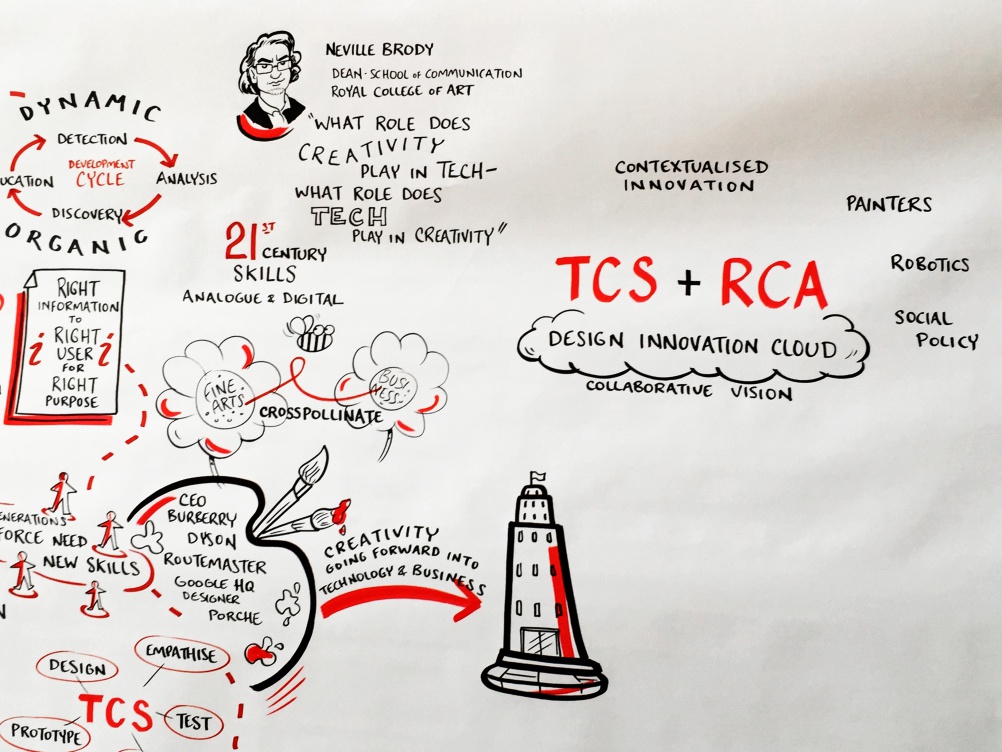 DYNAMIC
DETECTION
DEVELOPMENT
CYCLE
UCATION
ANALYSIS
DISCOVERY
ORGANIC
RIGHT
INFORMATION
TO
RIGHT
i USER i
FOR
RIGHT
PURPOSE
NEVILLE BRODY
DEAN - SCHOOL OF COMMUNICATION
ROYAL COLLEGE OF ART
"WHAT ROLE DOES
CREATIVITY
PLAY IN TECH-
WHAT ROLE DOES
TECH
PLAY IN CREATIVITY"
21ST CENTURY
SKILLS
ANALOGUE & DIGITAL
FINE
ARTS
CROSSPOLLINATE
BUSI
NESS
ENERATIONS
FORCE NEED
NEW SKILLS
N
CEO
BURBERRY
DYSON
ROUTEMASTER
GOOGLE HQ
DESIGNER
PORCHE
CREATIVITY
GOING FORWARD INTO
TECHNOLOGY & BUSINESS
DESIGN
EMPATHISE
TCS
TEST
PROTOTYPE
CONTEXTUALISED
INNOVATION
PAINTERS
ROBOTICS
SOCIAL
POLICY
TCS + RCA
DESIGN INNOVATION CLOUD
COLLABORATIVE VISION